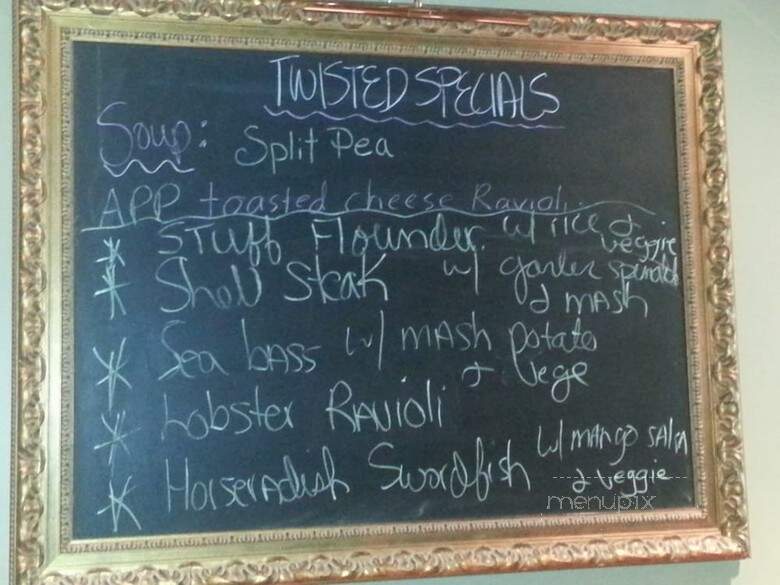 TWISTED SPECIALS
Soup: Split Pea
APP toasted cheese Ravioli
* STUFF Flounder w/ rice & veggie
* Shell Steak w/ garlic spinach
& MASH
* Sea bass w/ MASH potato
& Vege
* Lobster RAVioli
* Horseradish Swordfish w/ mango SAlsA
& Veggie
menupix